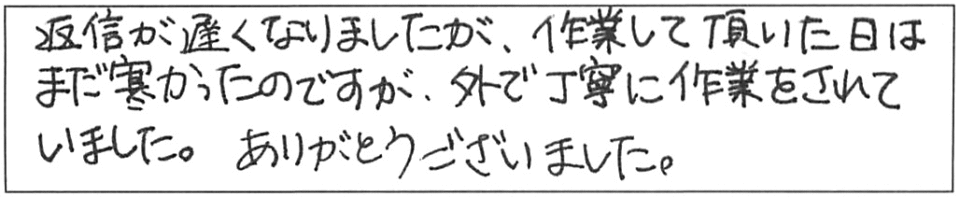 返信が遅くなりましたが、作業して頂いた日は
まだ寒かったのですが、外で丁寧に作業をされて
いました。ありがとうございました。